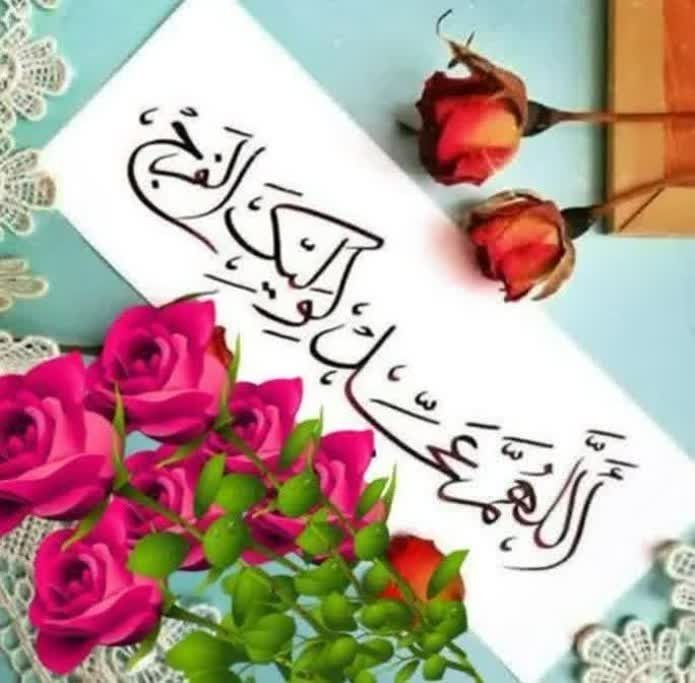 اَللّهُمَّ عَجِّلْ لِوَلِیِّکَ الْفَرَجْ